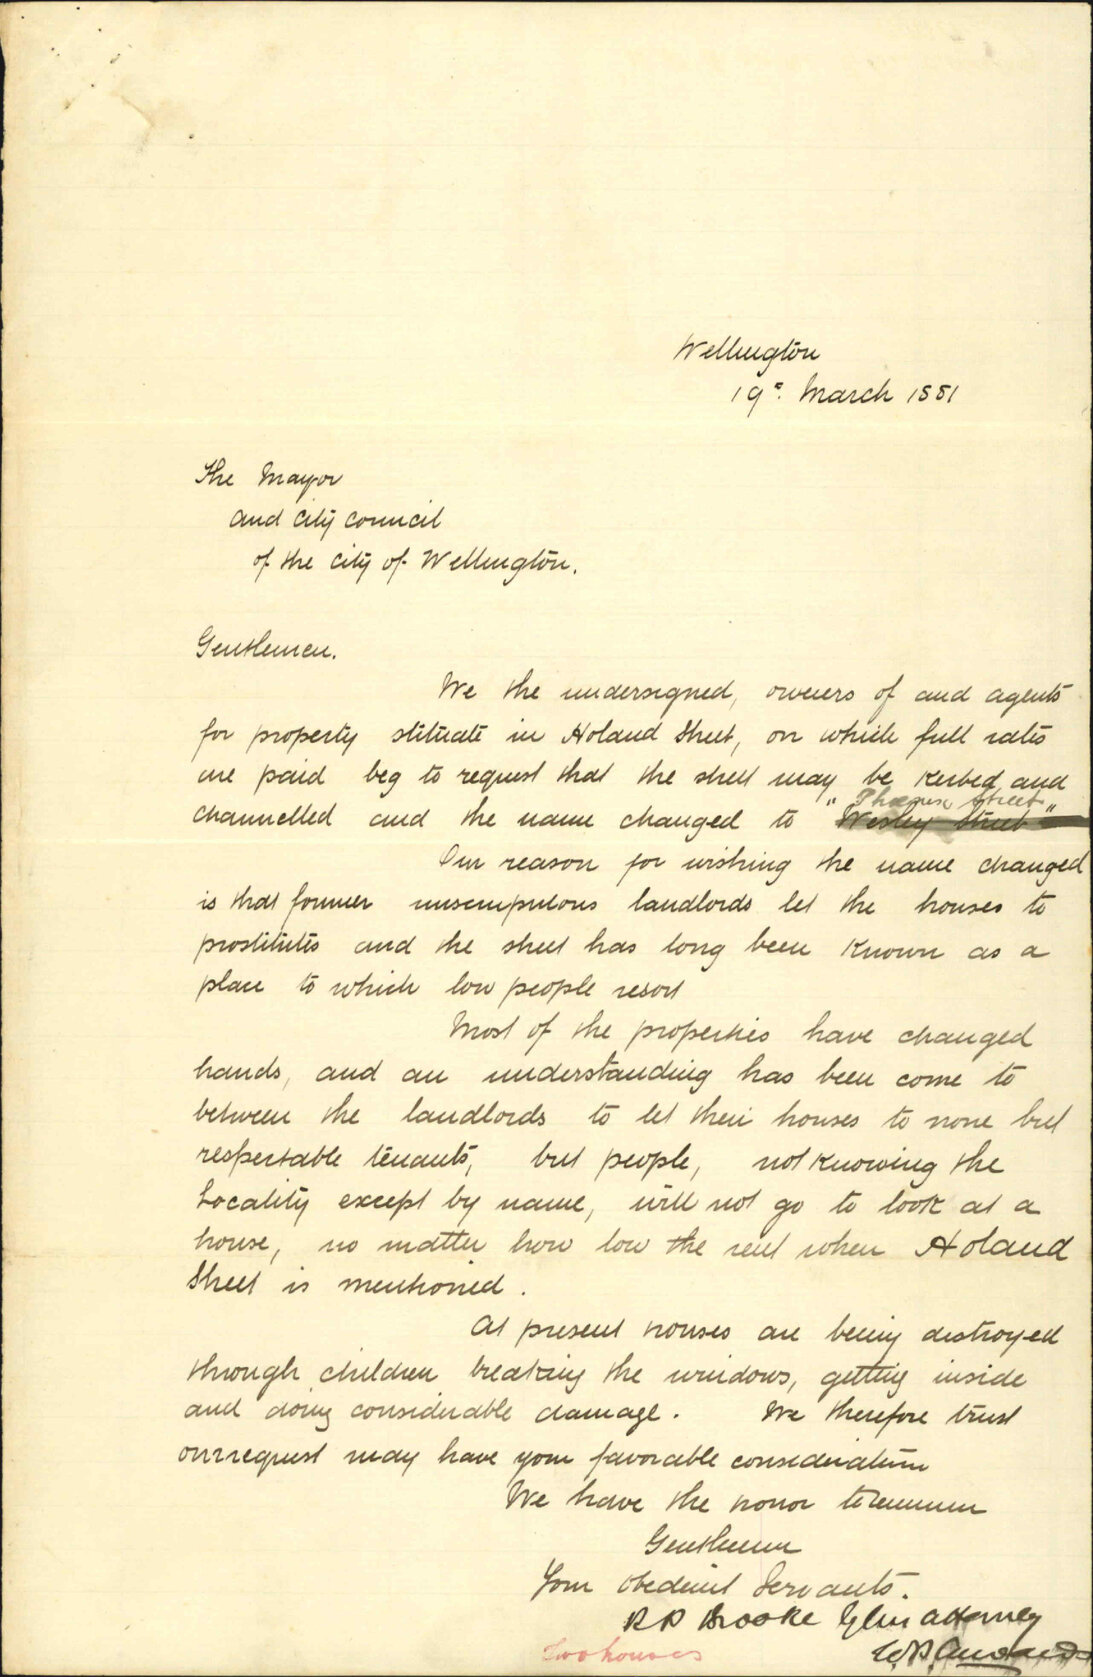 Wellington
19th March 1881
The Mayor
and City Council
of the City of Wellington.
Gentlemen.
We the undersigned, owners of and agents
for property stituate in Holand Street, on which full rates
are paid beg to request that the street may be kerbed and
Street
channelled and the name changed to "Wesley Street"
Our reason for wishing the name changed
is that former unscrupulous landlords let the houses to
prostitutes and the street has long been known as a
place to which low people resort
Most of the properties have changed
hands, and an understanding has been come to
between the landlords to let their houses to none but
respectable tenants, but people, not knowing the
Locality except by name, will not go to look at a
house, no matter how low the rent when Holand
Street is mentioned.
At present houses are being destroyed
through children breaking the windows, getting inside
and doing considerable damage. We therefore trust
our request may have your favorable consideration
We have the honor to remain
Gentlemen
Your obedient Servants.
R P Brooke by his attorney
W P
Two houses